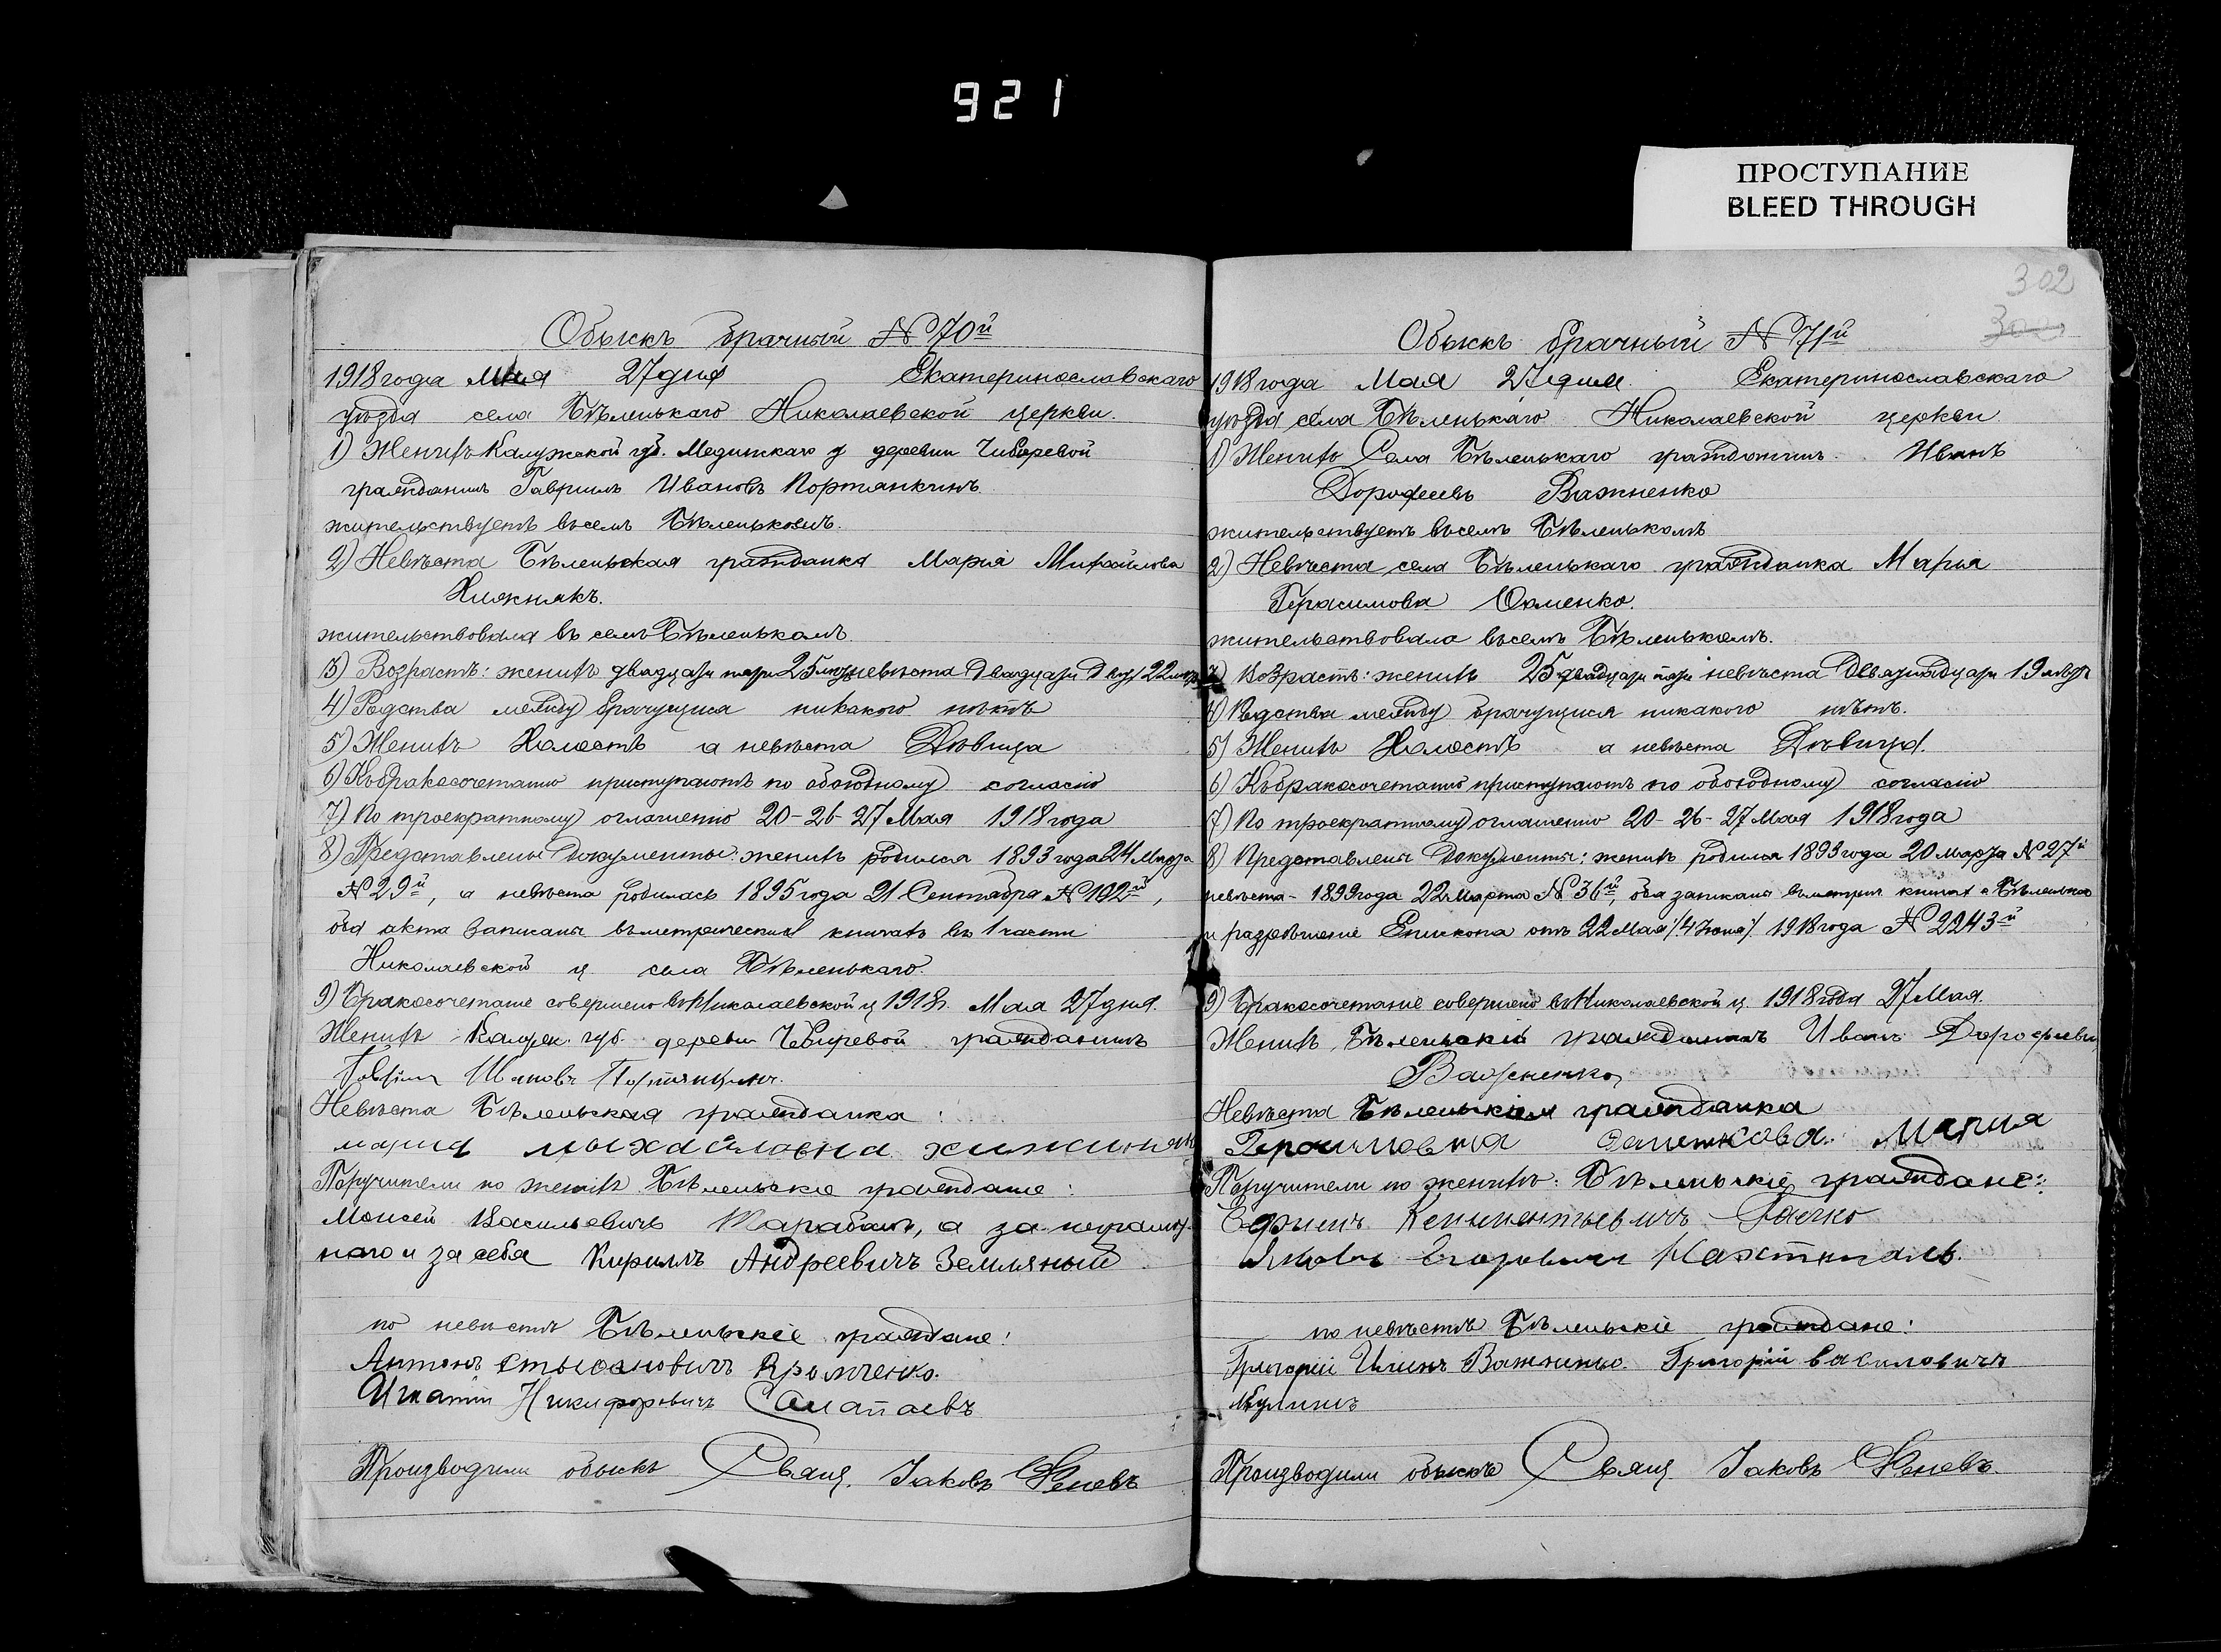 921
ПРОСТУПАНИЕ
BLEED THROUGH
Обыскъ брачный №70й
1918 года Мая 27 дня Екатеринославскаго
уѣзда села Бѣленькаго Николаевской церкви.
1) Женихъ Калужской губ. Медынскаго у деревни Чибиревой
гражданинъ Гавриилъ Ивановъ Портянкинъ
жительствуетъ въ селѣ Бѣленькомъ.
2) Невѣста Бѣленьская гражданка Марія Михайлова
Хижнякъ.
жительствовала въ селѣ Бѣленькомъ
3) Возрастъ: женихъ двадцати пяти 25 лѣтъ невѣста Двадцати двух 22 лѣтъ
4) Родства между брачущися никакого нѣтъ
5) Женихъ Холостъ а невѣста Дѣвица
6) Къ бракосочетанію приступаютъ по обоюдному согласію
7) По троекратному оглашенію 20-26-27 Мая 1918 года
8) Представлены Документы: женихъ родился 1893 года 24 Марта
№29й, а невѣста родилась 1895 года 21 Сентября №102й,
оба акта записаны въ метрических книгахъ въ 1 части
Николаевской ц. села Бѣленькаго.
9) Бракосочетаніе совершено въ Николаевской ц 1918 г. Мая 27 дня.
Женихъ Калуж. губ. деревни Чибиревой гражданинъ
Невѣста Бѣленьская гражданка:
мария мыхайловна хижиняк
Поручители по женихѣ Бѣленьскіе граждане:
Моисей Васильевичъ Тарабанъ, а за неграмот-
наго и за себя Кириллъ Андреевичъ Земляный
по невѣстѣ Бѣленьскіе граждане:
Антонъ Стыфановичъ
Игнатій Никифоровичъ
Производили обыскъ Свящ. Іаковъ
302
Обыскъ брачный №71й
1918 года Мая 27 дня. Екатеринославскаго
уѣзда села Бѣленькаго Николаевской церкви
1) Женихъ Села Бѣленькаго гражданинъ Иванъ
Дорофеевъ Важненко
жительствуетъ въ селѣ Бѣленькомъ
2) Невѣста села Бѣленькаго гражданка Марія
Герасимова
жительствовала въ селѣ Бѣленькомъ.
3) Возрастъ: женихъ 25 двадцати пяти невѣста Девятнадцати 19 лѣтъ
4) Родства между брачущися никакого нѣтъ.
5) Женихъ Холостъ а невѣста Дѣвица.
6) Къ бракосочетанію приступаютъ по обоюдному согласію
7) По троекратному оглашенію 20-26-27 Мая 1918 года
8) Представлены Документы: женихъ родился 1893 года 20 марта №27й
невѣста - 1899 года 22 Марта №36й, оба записаны въ метрич. книгах с Бѣленькаго
и разрѣшеніе Епископа отъ 22 Мая /4 Іюня/. 1918 года №2243й
9) Бракосочетаніе совершено въ Николаевской ц. 1918 года 27 Мая.
Женихъ Бѣленьскій гражданинъ Иванъ Дорофеевич
Важненко
Невѣста Бѣленьская гражданка
Мария
Поручители по женихѣ: Бѣленьскіе граждане:
Ефимъ Климентьевичъ
Яковъ Егоровичъ
по невѣстѣ Бѣленьскіе граждане:
Григорій Илинъ Важненко. Григорій Василовичъ
Производили обыскъ Свящ Іаковъ